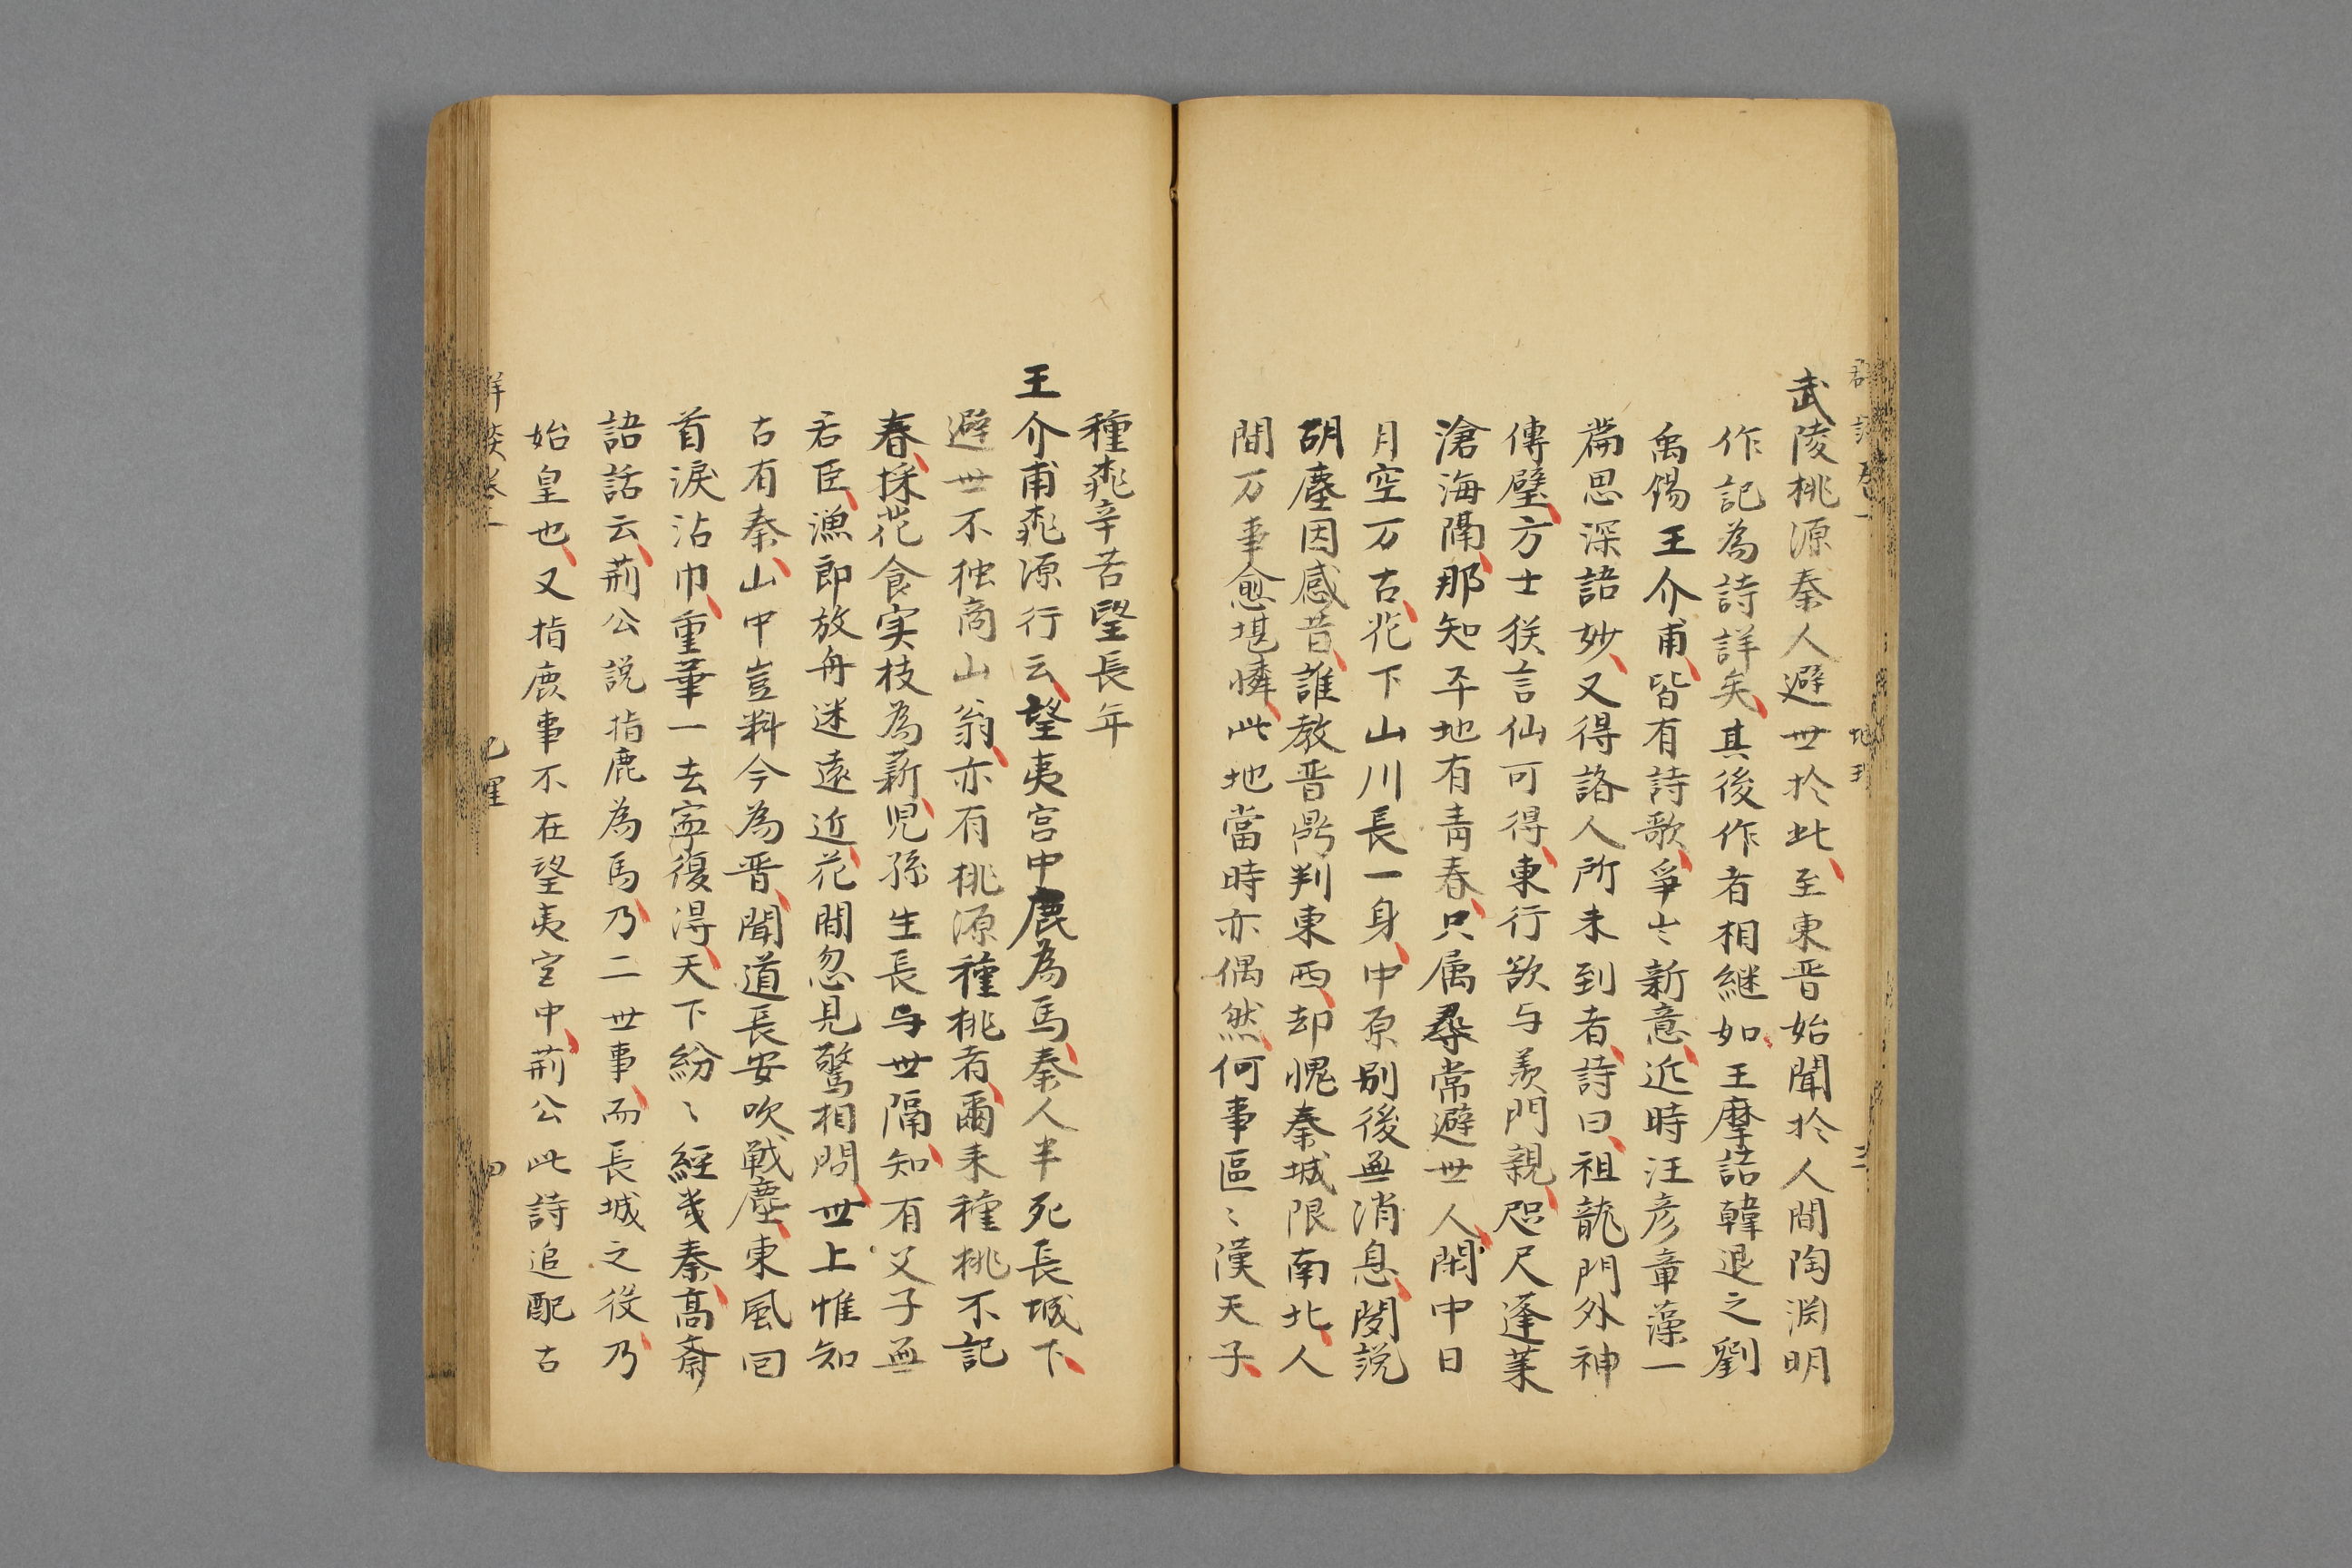 武陵桃源秦人避世於此至東晋始聞於人間陶渕明
作記為詩詳矣其後作者相継如王摩詰韓退之劉
禹錫王介甫皆有詩歌爭出新意近時汪彦章藻一
篇思深語妙又得諸人所未到者詩曰祖龍門外神
傳璧方士猶言仙可得東行欲与羨門親咫尺蓬莱
滄海隔那知平地有青春只属尋常避世人関中日
月空万古花下山川長一身中原别後無消息聞説
胡塵因感昔誰教晋鼎判東西却愧秦城限南北人
間万事愈堪憐此地當時亦偶然何事區〻漢天子
種桃辛苦望長年
王介甫桃源行云望夷宫中鹿為馬秦人半死長城下
避世不独商山翁亦有桃源種桃者爾来種桃不記
春採花食实枝為薪児孫生長与世隔知有父子無
君臣漁郎放舟迷遠近花間忽見驚相問世上惟知
古有秦山中豈料今為晋聞道長安吹戦塵東風回
首淚沾巾重華一去寧復得天下紛〻經幾秦高斎
語話云荊公説指鹿為馬乃二世事而長城之役乃
始皇也又指鹿事不在望夷宫中荊公此詩追配古